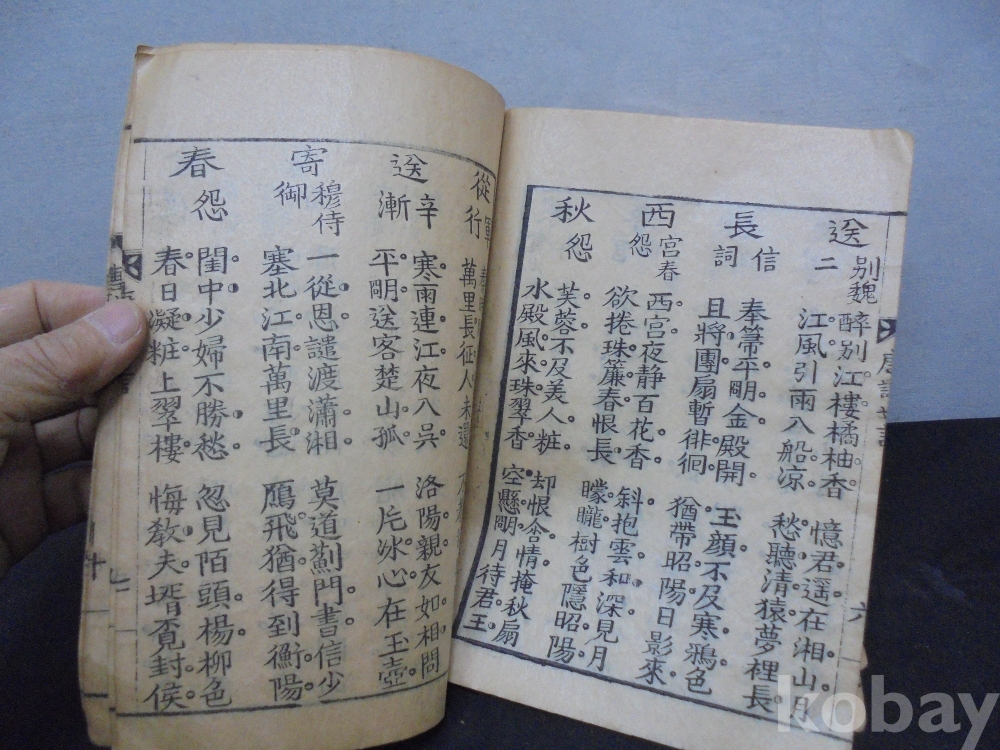 唐詩
六
送別魏二
醉别江樓橘柚香
江風引雨入船凉
憶君遥在湘山月
愁聽清猿夢裡長
長信詞
奉箒平明金殿開
且將團扇暫徘徊
玉顔不及寒鴉色
猶帶昭陽日影來
西宮春怨
西宮夜静百花香
欲捲珠簾春恨長
斜抱雲和深見月
朦朧樹色隱昭陽
秋怨
芙蓉不及美人粧
水殿風來珠翠香
却恨含情掩秋扇
空懸明月待君王
從軍行
萬里長征人未還
送辛漸
寒雨連江夜入吳
平明送客楚山孤
洛陽親友如相問
一片冰心在玉壺
寄穆侍御
一從恩譴渡瀟湘
塞北江南萬里長
莫道薊門書信少
鴈飛猶得到衡陽
春怨
閨中少婦不勝愁
春日凝粧上翠樓
忽見陌頭楊柳色
悔教夫壻覓封侯
kobay